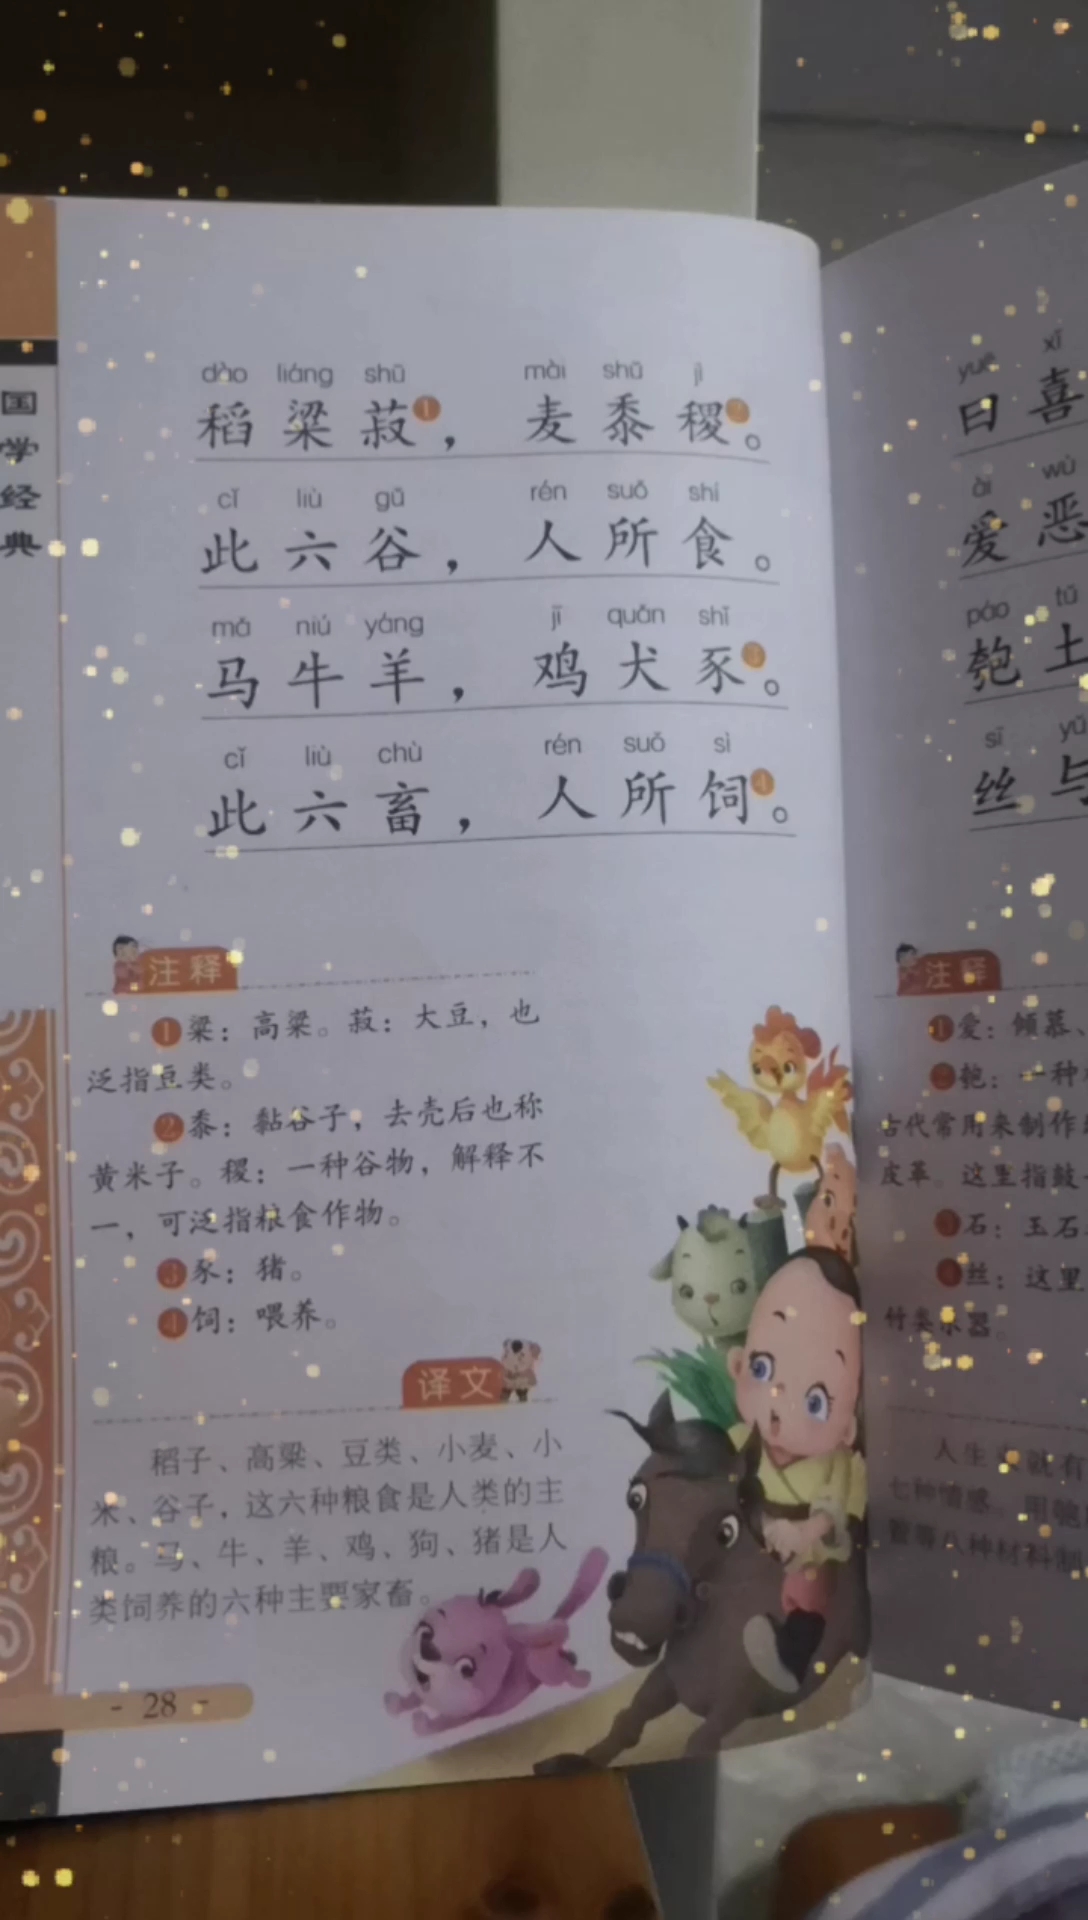 国学经典
dào liáng shū mài shǔ jì
稻粱菽①，麦黍稷②。
cǐ liù gǔ rén suǒ shí
此六谷，人所食。
mǎ niú yáng jī quǎn shǐ
马牛羊，鸡犬豕③。
cǐ liù chù rén suǒ sì
此六畜，人所饲④。
注释
①粱：高粱。菽：大豆，也
泛指豆类。
②黍：黏谷子，去壳后也称
黄米子。稷：一种谷物，解释不
一，可泛指粮食作物。
③豕：猪。
④饲：喂养。
译文
稻子、高粱、豆类、小麦、小
米、谷子，这六种粮食是人类的主
粮。马、牛、羊、鸡、狗、猪是人
类饲养的六种主要家畜。
- 28 -
yuē xǐ
曰喜
ài wù
爱恶
páo tǔ
匏土
sī yǔ
丝与
注释
①爱：倾慕、
②匏：一种
古代常用来制作
皮革。这里指鼓
③石：玉石
④丝：这里
竹类乐器。
人生来就有
七种情感。用匏
管等八种材料制